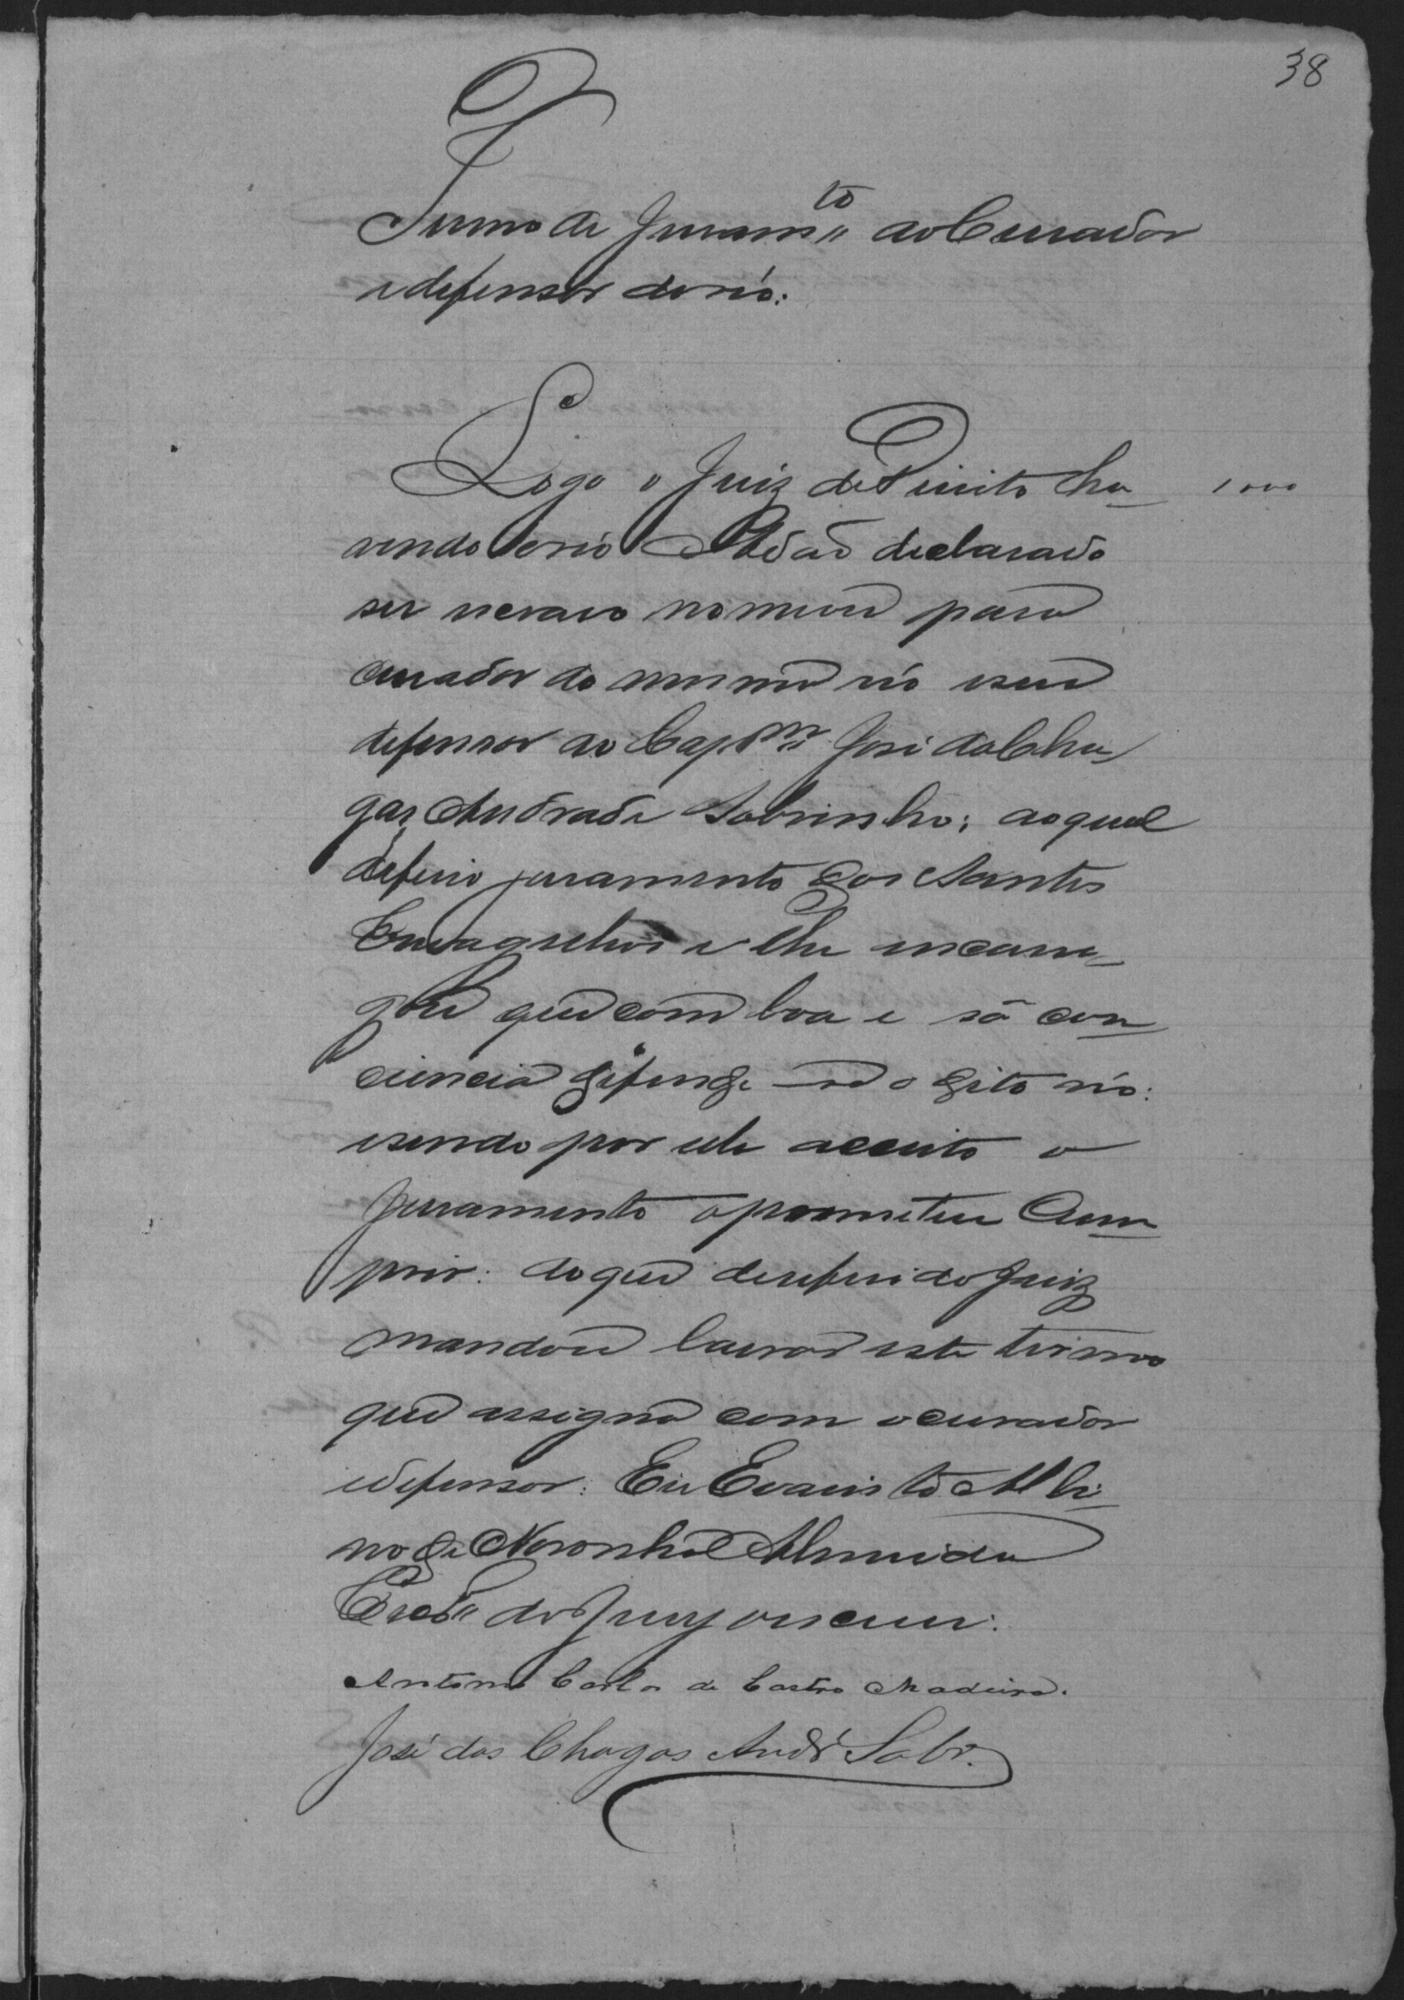 38
Termo de Juramto ao Curador
e defensor do réo:
Logo o Juiz de Direito ha- 1000
vendo o réo Adão declarado
ser escravo nomeou para
curador do mesmo réo e seu
defensor ao Capm José das Cha-
gas Andrade Sobrinho; ao qual
deferio juramento dos Santos
Evangelhos e lhe encarre-
gou que com boa e sã con-
ciencia defendesse o dito réo:
e sendo por elle acceito o
juramento o prometeu Cum-
prir: do que de referido Juiz
mandou lavrar este termo
que assigna com o curador
e defensor: Eu Evaristo Albi-
no de Noronha Almeida
Escro do Jury o escrevi:
Antonio Carlos de Castro Madeira.
José das Chagas Andr Sobr.